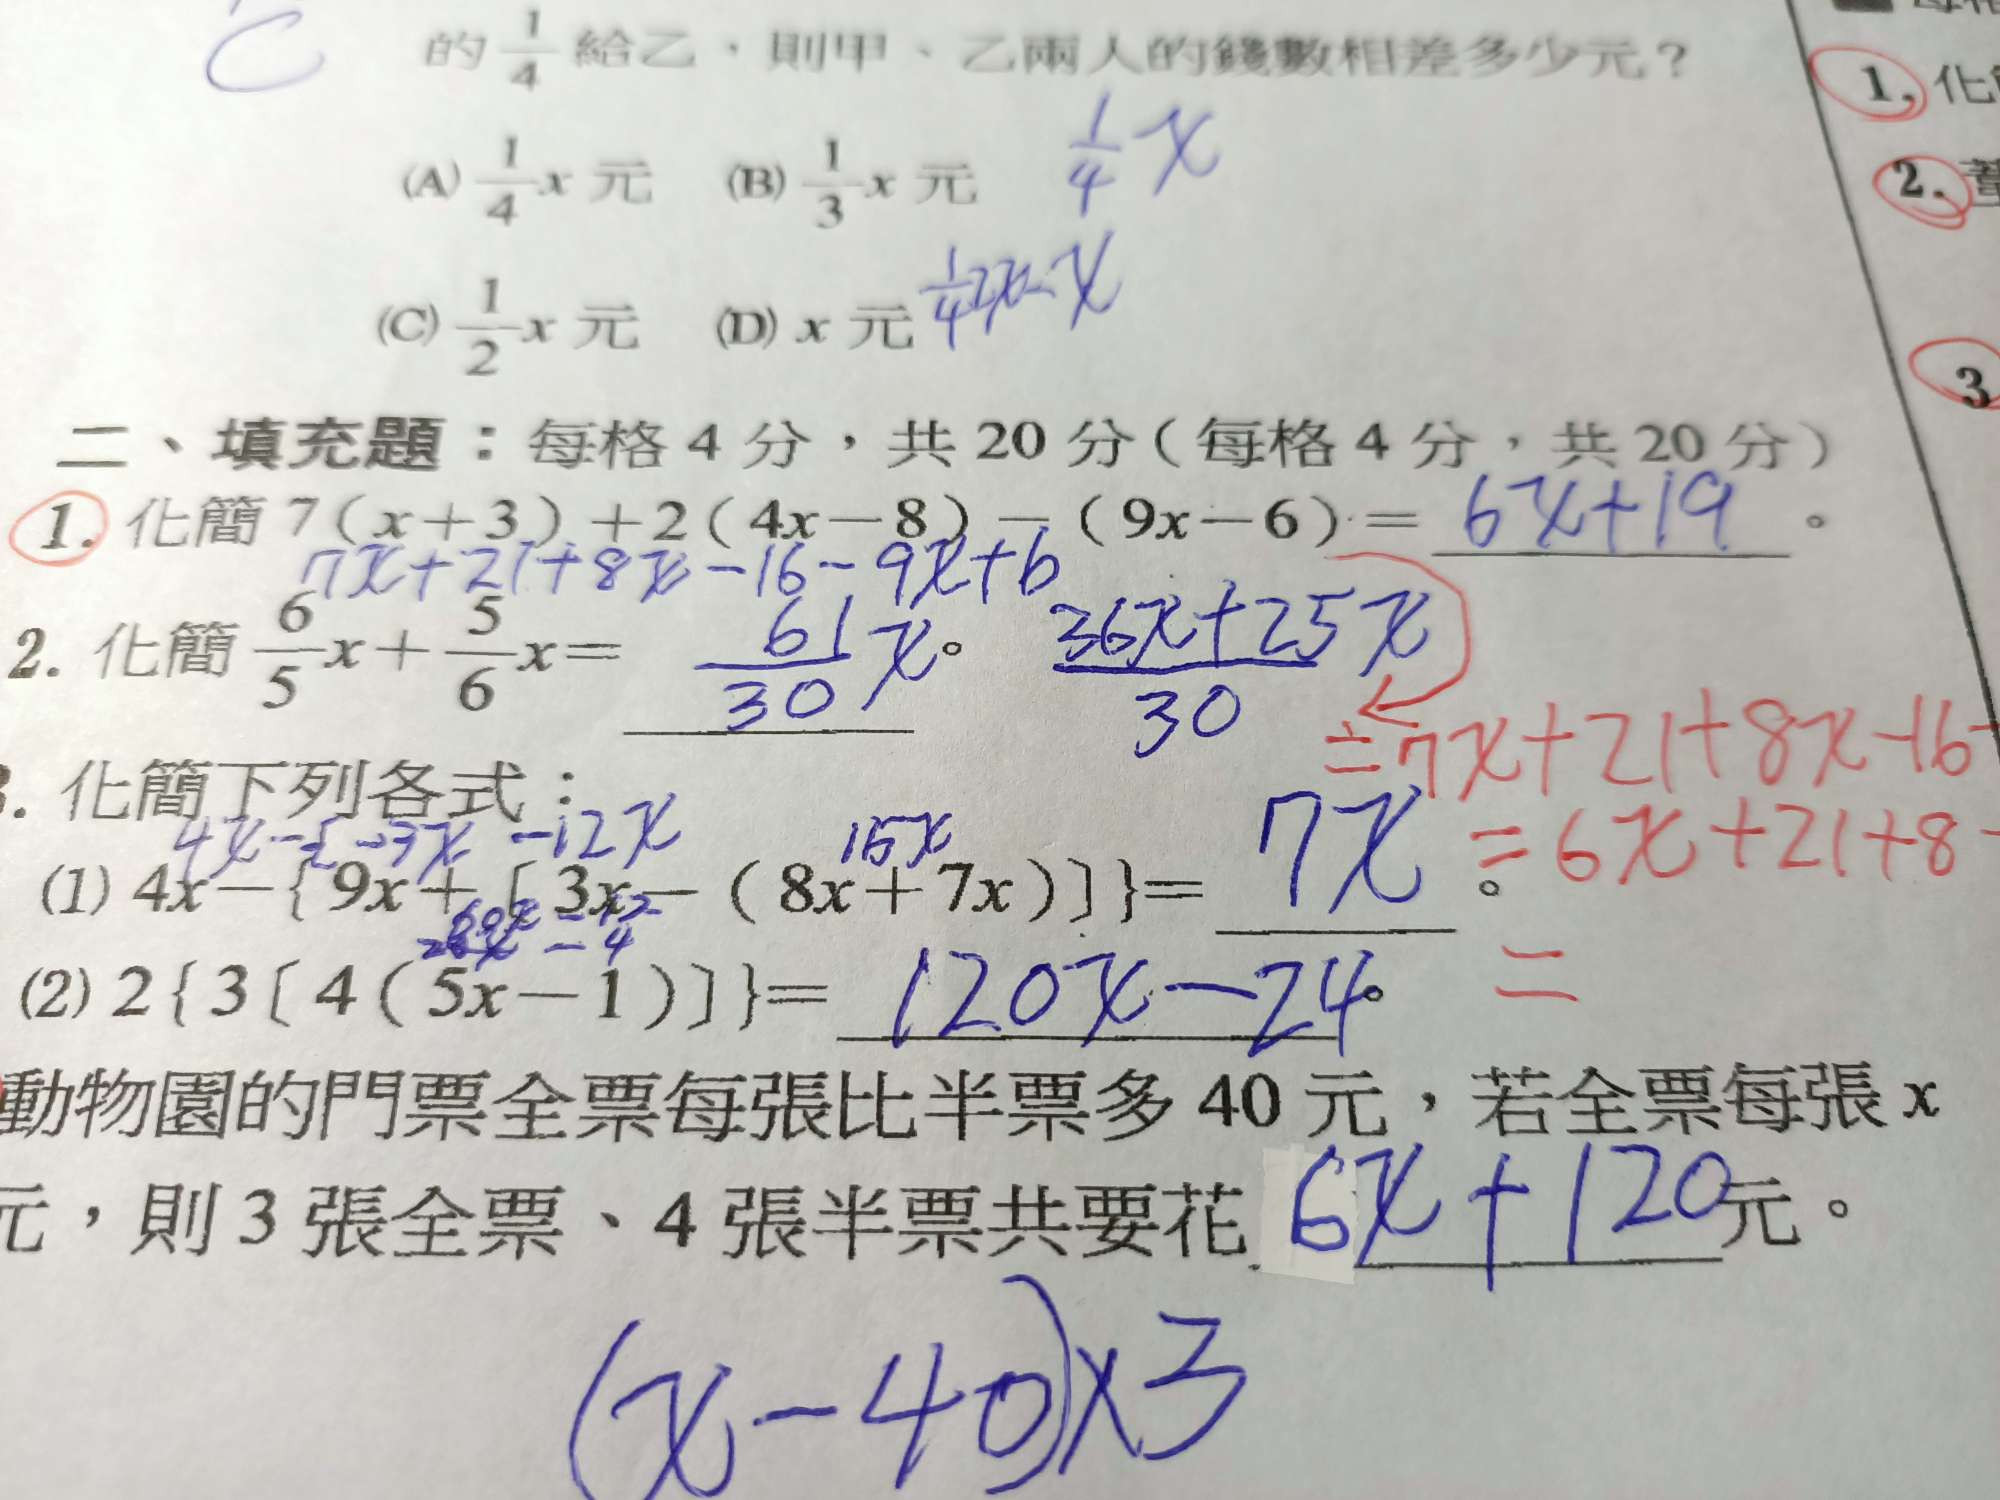 的 1/4 給乙，則甲、乙兩人的錢數相差多少元？
(A) 1/4 x 元 (B) 1/3 x 元 1/4 x
(C) 1/2 x 元 (D) x 元
二、填充題：每格 4 分，共 20 分（每格 4 分，共 20 分）
1. 化簡 7(x+3)+2(4x-8)-(9x-6)= 6x+19 。
7x+21+8x-16-9x+6
2. 化簡 6/5 x + 5/6 x = 61/30 x 。 36x+25x/30
=7x+21+8x-16-
=6x+21+8-
=
3. 化簡下列各式：
4x-{-3x -12x 15x
(1) 4x-{9x+[3x-(8x+7x)]}= 7x 。
60x-12
(2) 2{3[4(5x-1)]}= 120x-24 。
動物園的門票全票每張比半票多 40 元，若全票每張 x
元，則 3 張全票、4 張半票共要花 6x+120 元。
(x-40)×3
1. 化
2.
3